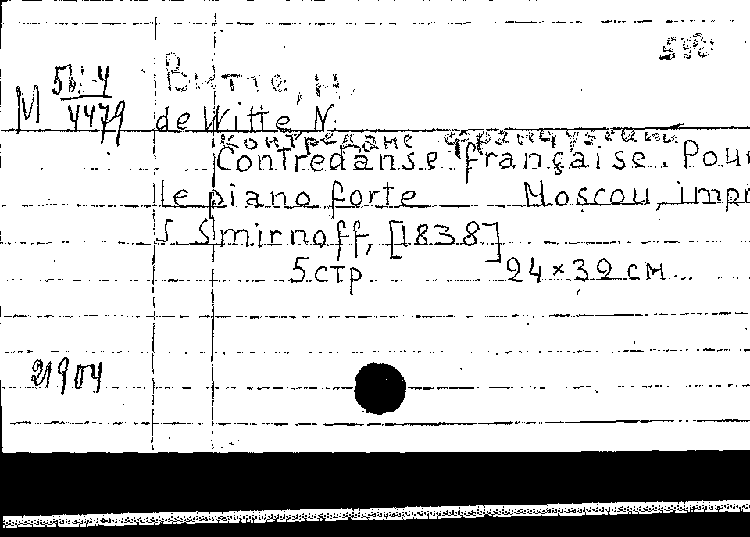 Витте, Н.
de Witte N.
контреданс французский
Contredanse française. Pour
le piano forte Moscou, impr
S. Smirnoff, [1838]
5 стр 24 × 32 см
М
4479
21904